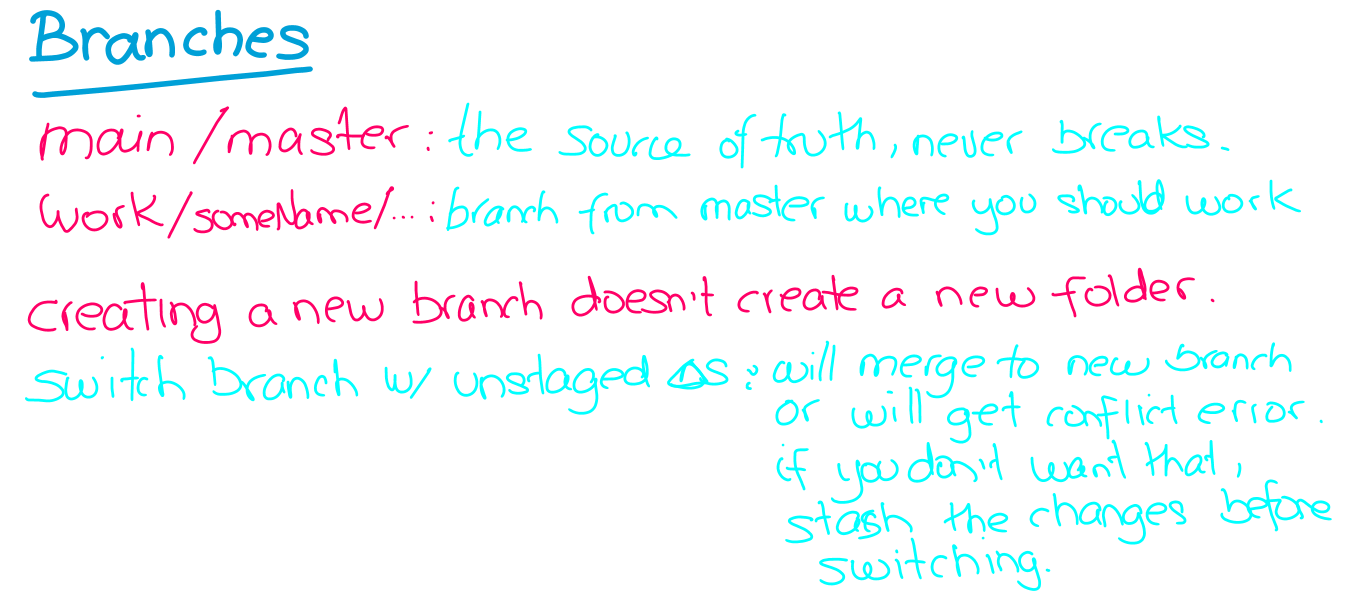 Branches
main/master: the source of truth, never breaks.
work/someName/...: branch from master where you should work
creating a new branch doesn't create a new folder.
switch branch w/ unstaged Δs: will merge to new branch
or will get conflict error.
if you don't want that,
stash the changes before
switching.